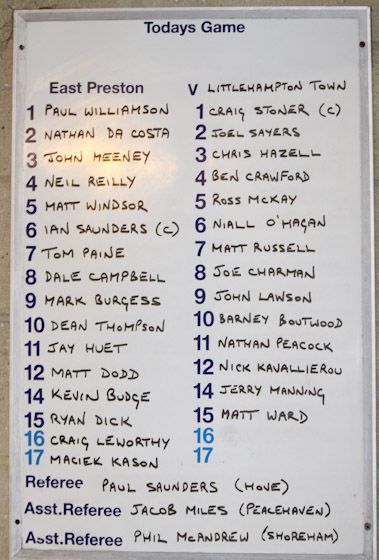 Todays Game
East Preston V LITTLEHAMPTON TOWN
1 PAUL WILLIAMSON 1 CRAIG STONER (C)
2 NATHAN DA COSTA 2 JOEL SAYERS
3 JOHN MEENEY 3 CHRIS HAZELL
4 NEIL REILLY 4 BEN CRAWFORD
5 MATT WINDSOR 5 ROSS MCKAY
6 IAN SAUNDERS (C) 6 NIALL O'HAGAN
7 TOM PAINE 7 MATT RUSSELL
8 DALE CAMPBELL 8 JOE CHARMAN
9 MARK BURGESS 9 JOHN LAWSON
10 DEAN THOMPSON 10 BARNEY BOUTWOOD
11 JAY HUET 11 NATHAN PEACOCK
12 MATT DODD 12 NICK KAVALLIEROU
14 KEVIN BUDGE 14 JERRY MANNING
15 RYAN DICK 15 MATT WARD
16 CRAIG LEWORTHY 16
17 MACIEK KASON 17
Referee PAUL SAUNDERS (HOVE)
Asst.Referee JACOB MILES (PEACEHAVEN)
Asst.Referee PHIL McANDREW (SHOREHAM)